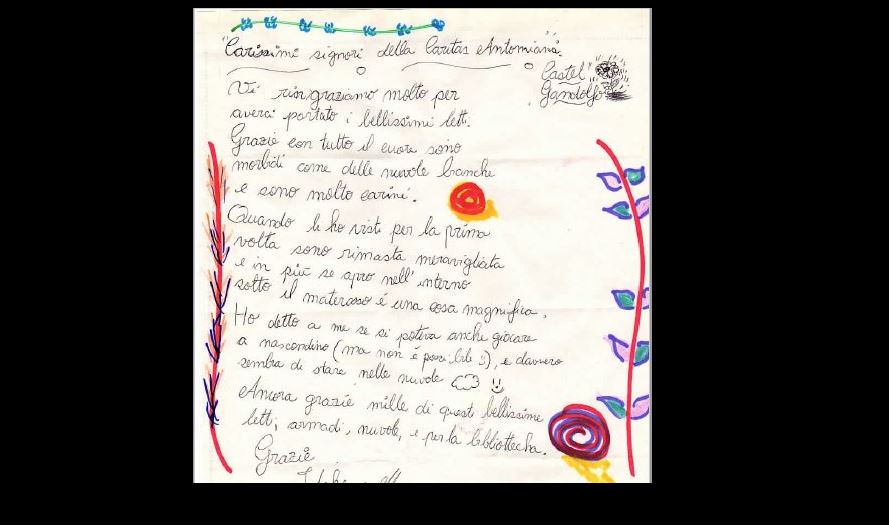 "Carissimi signori della Caritas Antoniana"
Castel
Gandolfo
Vi ringraziamo molto per
averci portato i bellissimi letti.
Grazie con tutto il cuore sono
morbidi come delle nuvole bianche
e sono molto carini.
Quando li ho visti per la prima
volta sono rimasta meravigliata
e in più se apro nell'interno
sotto il materasso é una cosa magnifica.
Ho detto a me se si poteva anche giocare
a nascondino (ma non é possibile :)), e davvero
sembra di stare nelle nuvole
Ancora grazie mille di questi bellissime
letti, armadi, nuvole, e per la bibliottecha.
Grazie